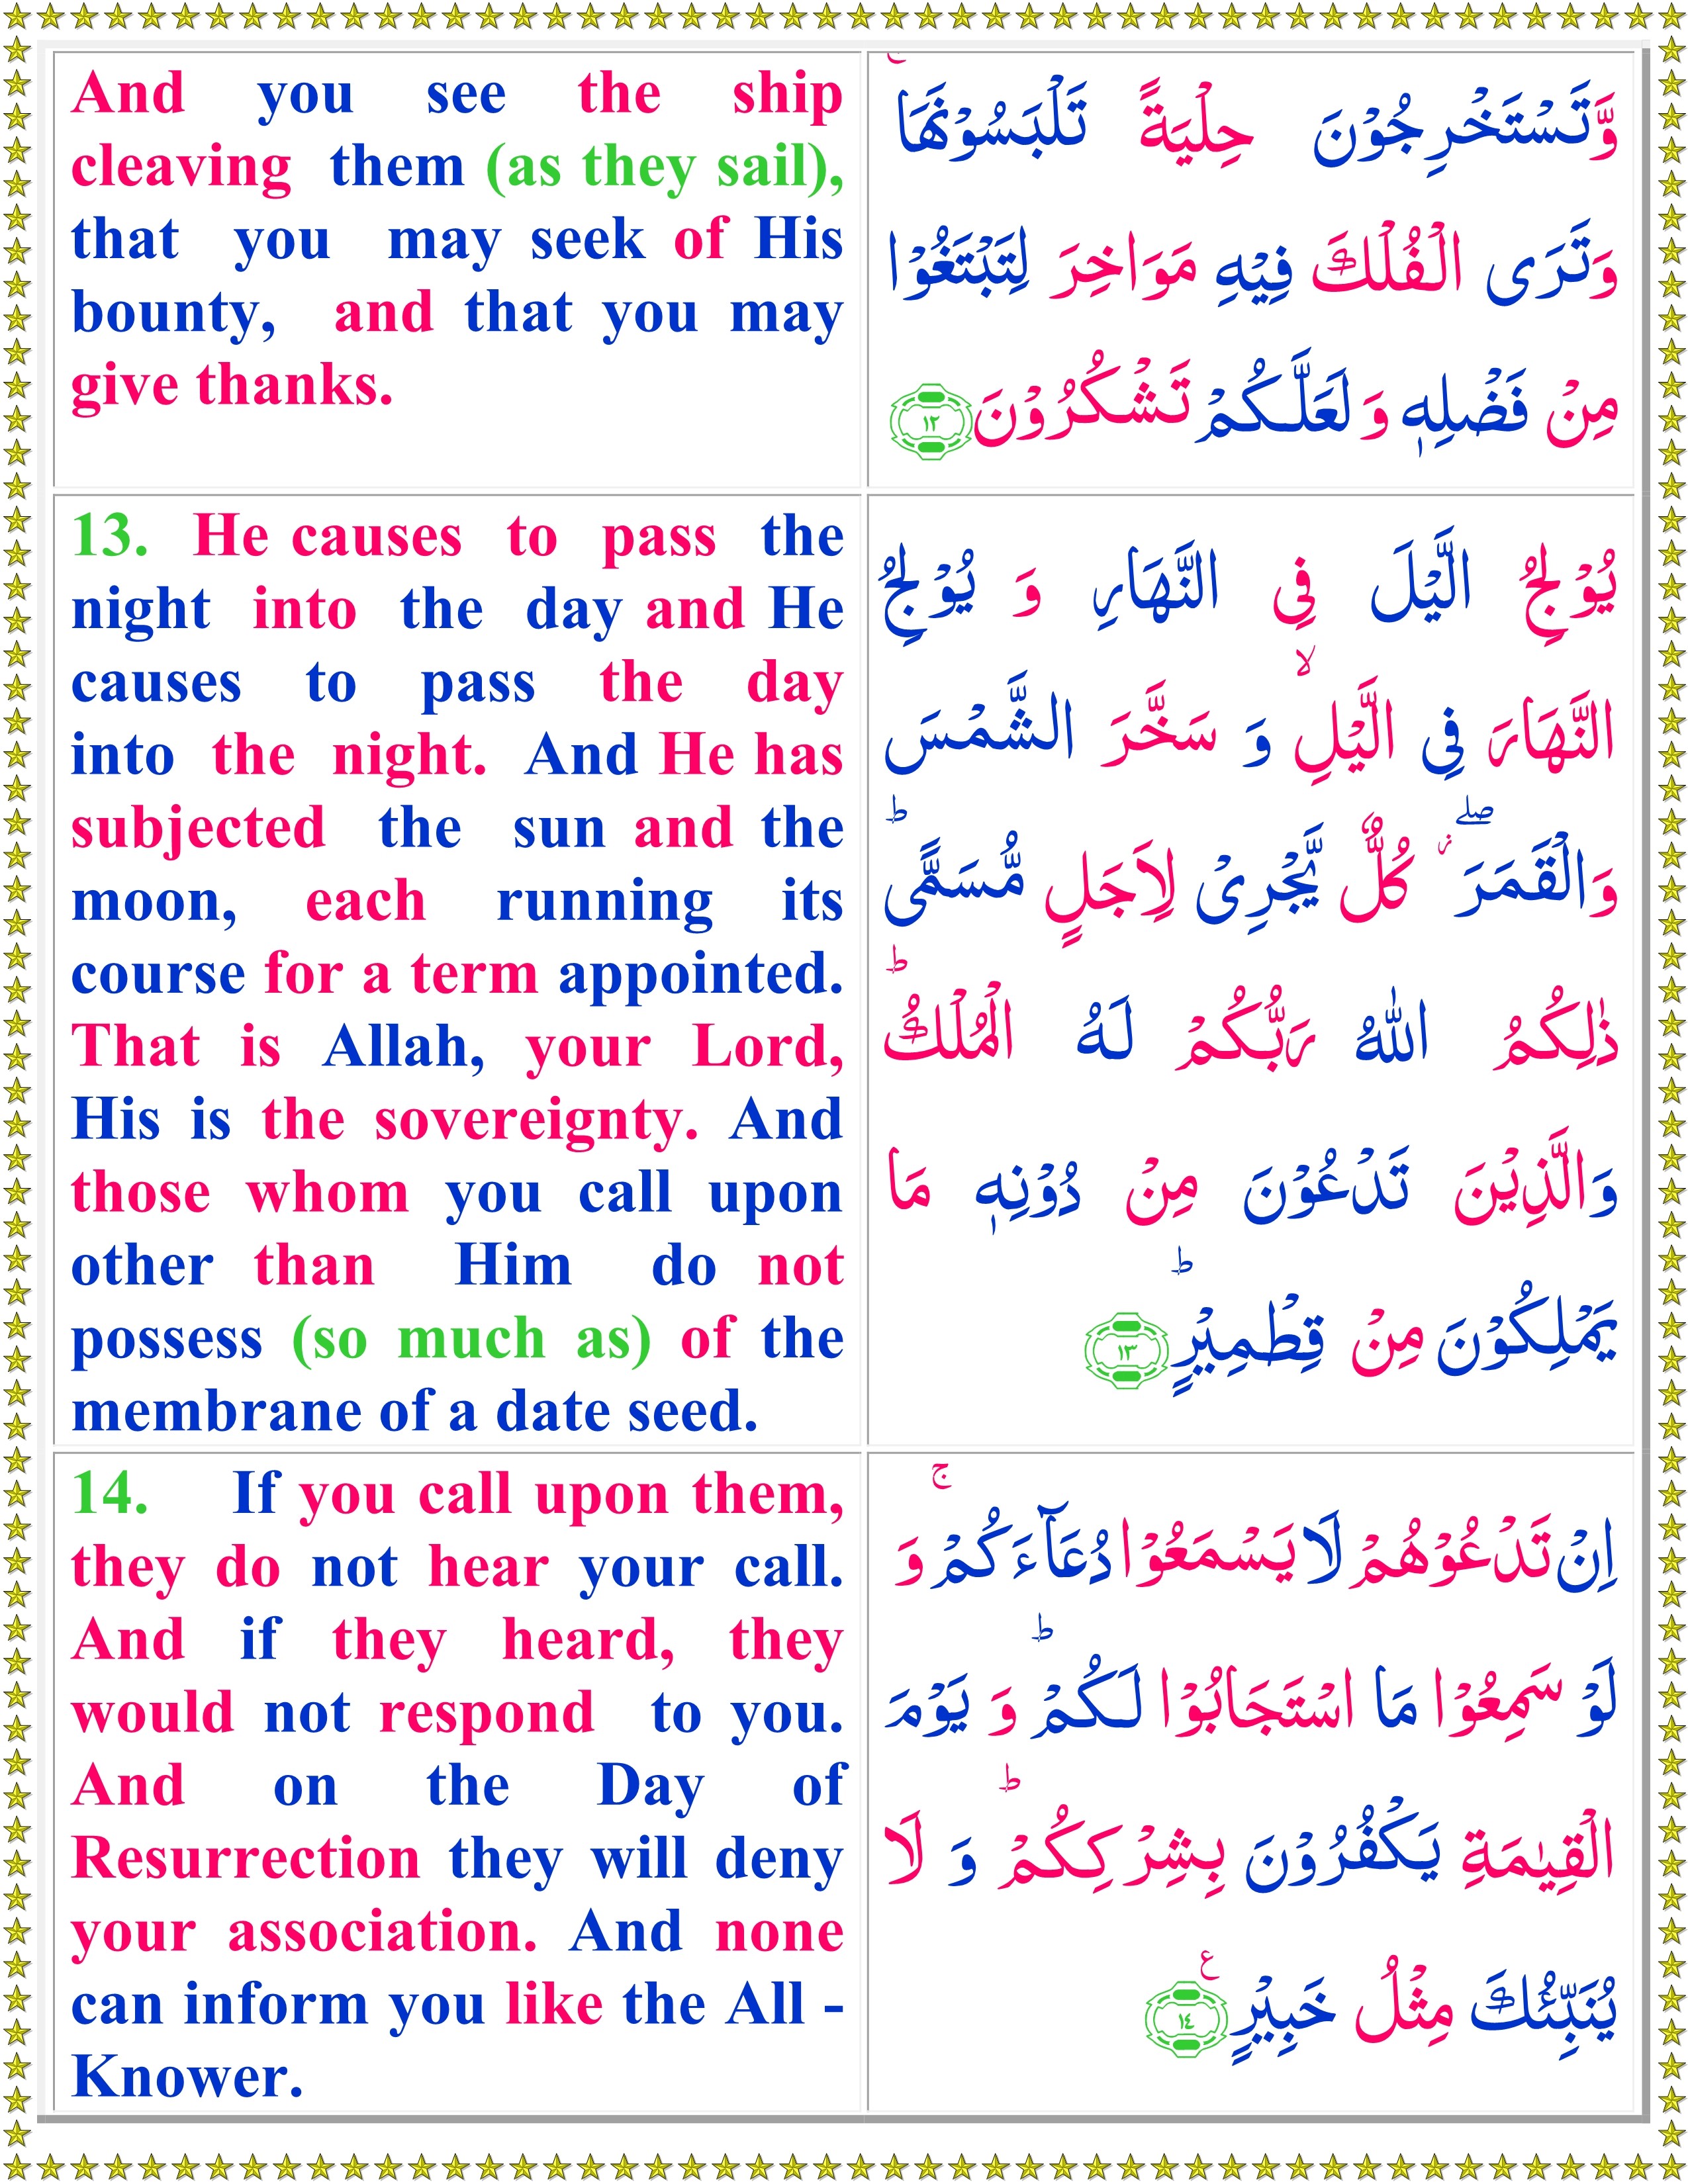 And you see the ship
cleaving them (as they sail),
that you may seek of His
bounty, and that you may
give thanks.
وَّتَسْتَخْرِجُوْنَ حِلْيَةً تَلْبَسُوْنَهَا ۚ
وَتَرَى الْفُلْكَ فِيْهِ مَوَاخِرَ لِتَبْتَغُوْا
مِنْ فَضْلِهٖ وَ لَعَلَّكُمْ تَشْكُرُوْنَ ١٢
13. He causes to pass the
night into the day and He
causes to pass the day
into the night. And He has
subjected the sun and the
moon, each running its
course for a term appointed.
That is Allah, your Lord,
His is the sovereignty. And
those whom you call upon
other than Him do not
possess (so much as) of the
membrane of a date seed.
يُوْلِجُ الَّيْلَ فِى النَّهَارِ وَ يُوْلِجُ
النَّهَارَ فِى الَّيْلِ ۙ وَ سَخَّرَ الشَّمْسَ
وَالْقَمَرَ ۖ ز كُلٌّ يَّجْرِىْ لِاَجَلٍ مُّسَمًّى ؕ
ذٰلِكُمُ اللّٰهُ رَبُّكُمْ لَهُ الْمُلْكُ ؕ
وَالَّذِيْنَ تَدْعُوْنَ مِنْ دُوْنِهٖ مَا
يَمْلِكُوْنَ مِنْ قِطْمِيْرٍ ؕ ١٣
14. If you call upon them,
they do not hear your call.
And if they heard, they
would not respond to you.
And on the Day of
Resurrection they will deny
your association. And none
can inform you like the All -
Knower.
اِنْ تَدْعُوْهُمْ لَا يَسْمَعُوْا دُعَآءَكُمْ ۚ وَ
لَوْ سَمِعُوْا مَا اسْتَجَابُوْا لَكُمْ ؕ وَ يَوْمَ
الْقِيٰمَةِ يَكْفُرُوْنَ بِشِرْكِكُمْ ؕ وَ لَا
يُنَبِّئُكَ مِثْلُ خَبِيْرٍ ع ١٤